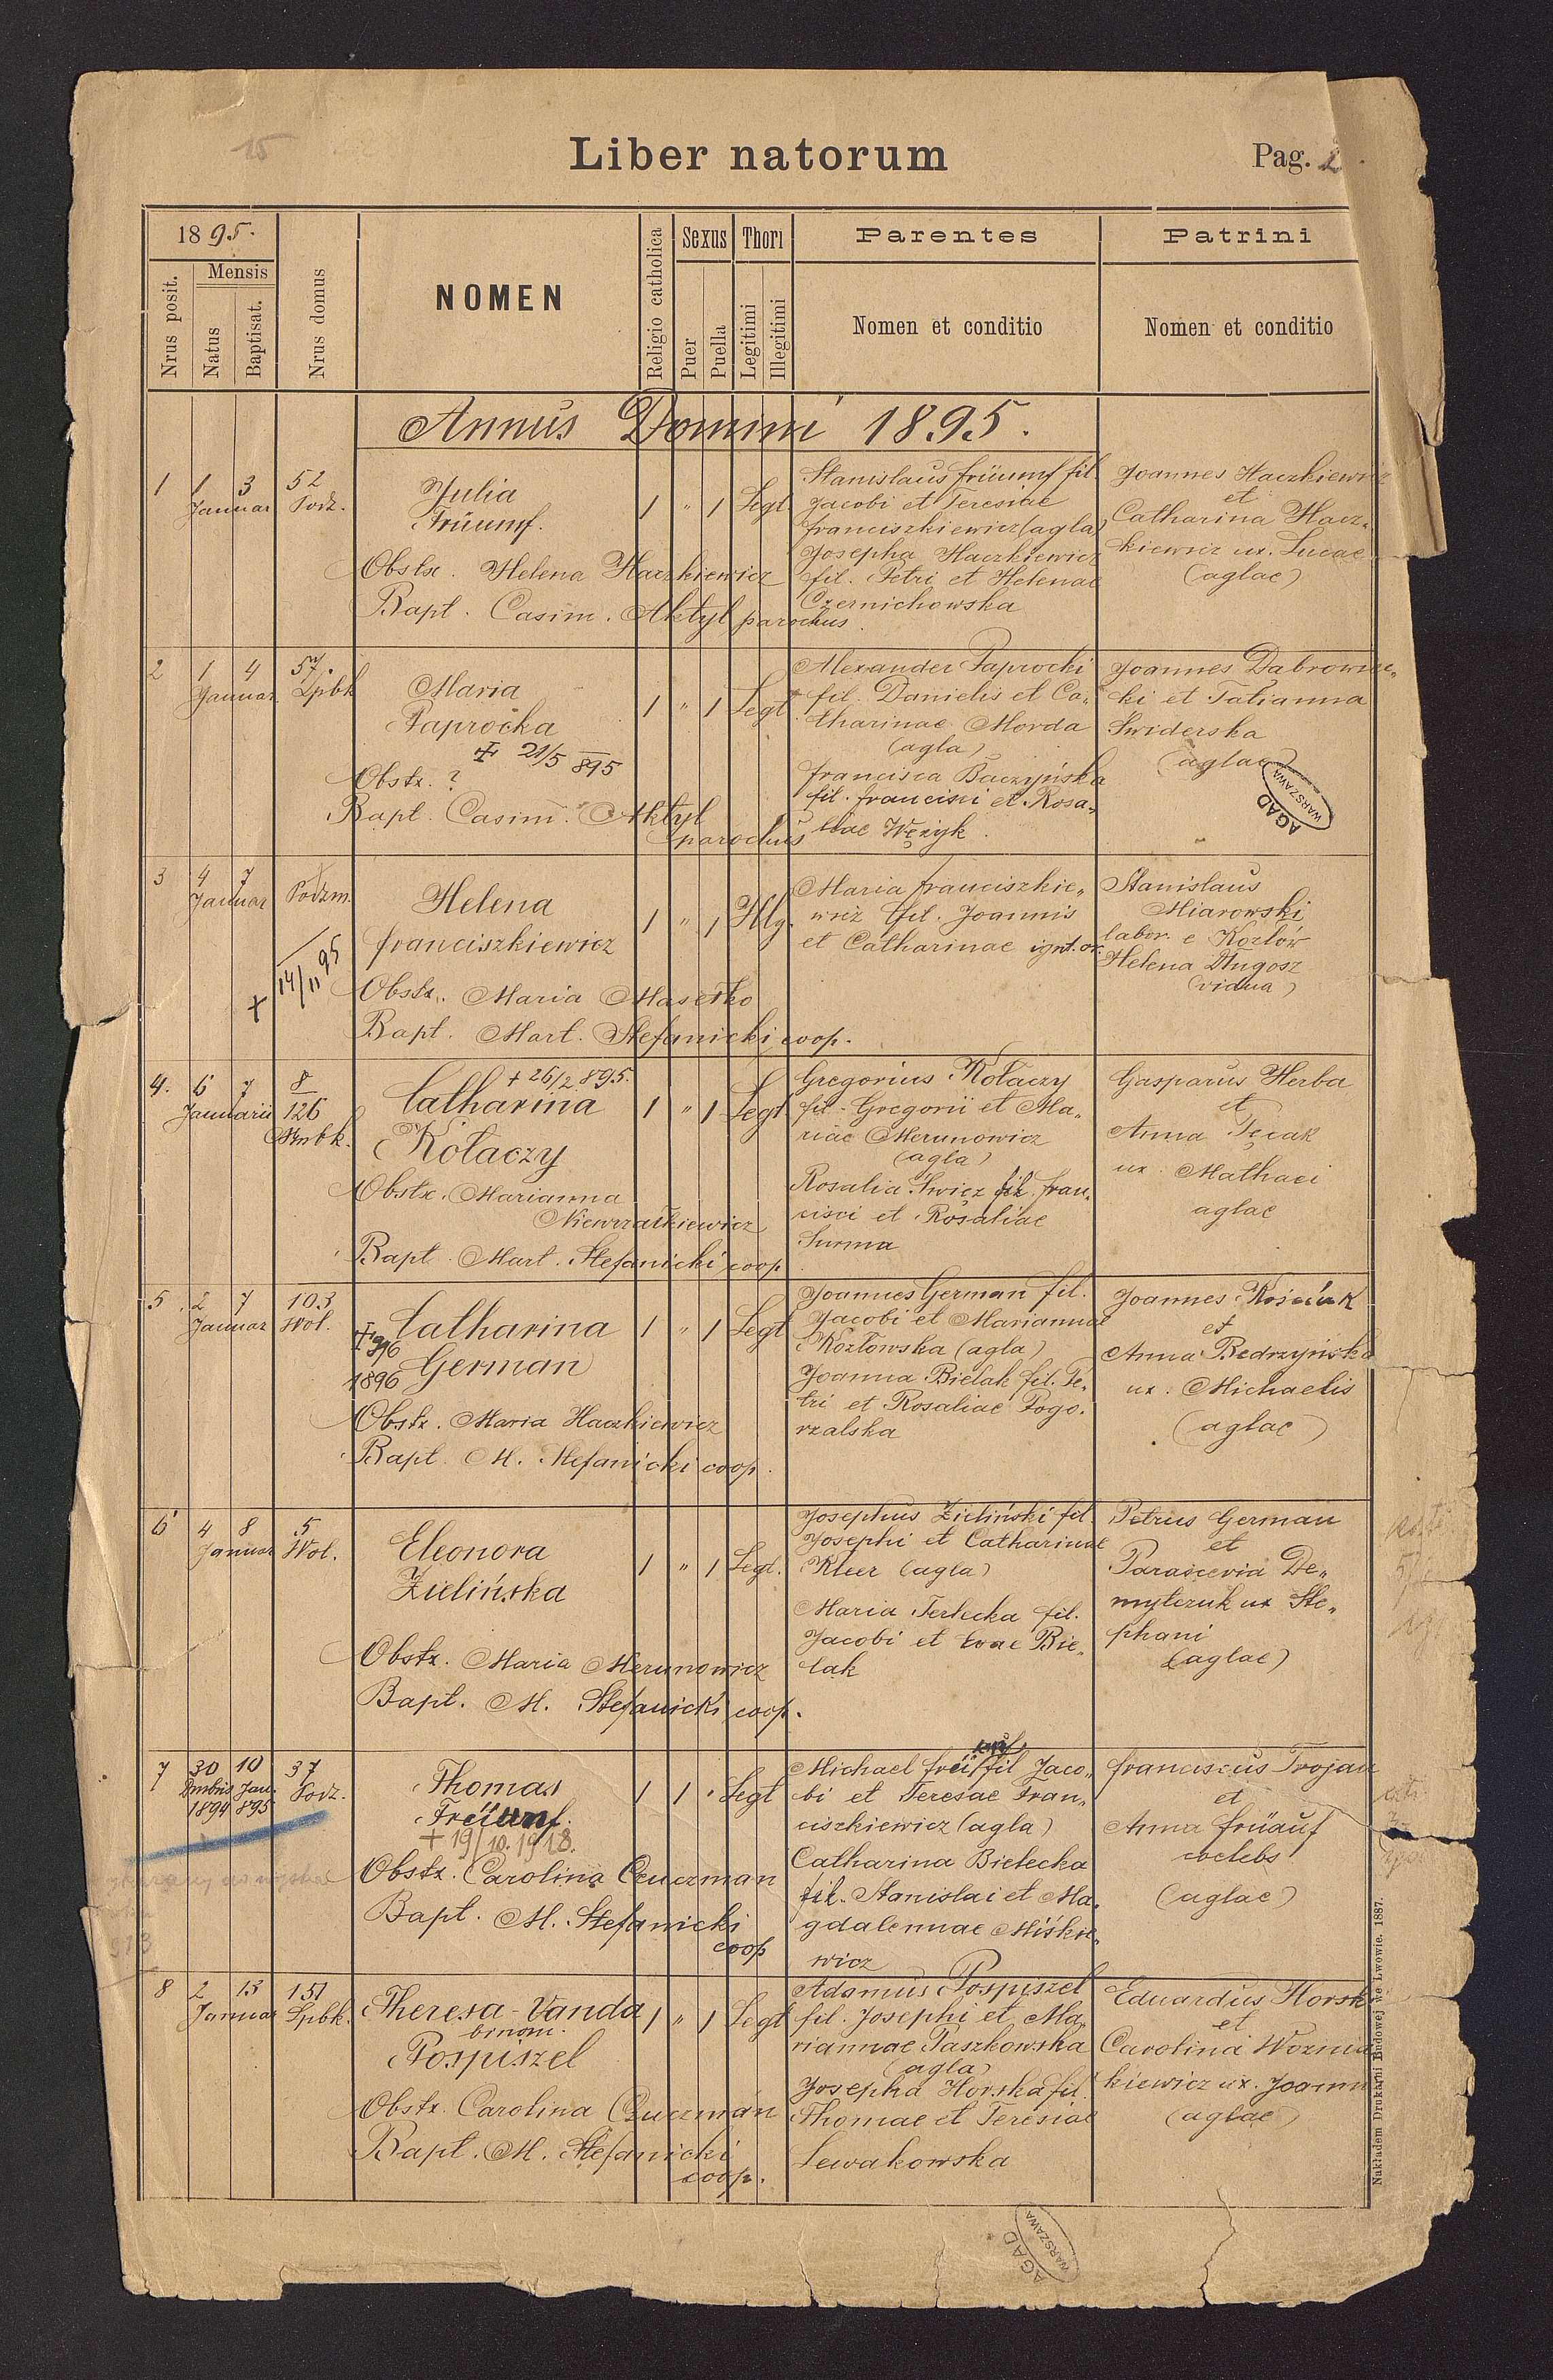 15
Liber natorum
Pag. 2.
1895.
Nrus posit.
Mensis
Natus
Baptisat.
Nrus domus
NOMEN
Religio catholica
Sexus
Puer
Puella
Thori
Legitimi
Illegitimi
Parentes
Nomen et conditio
Patrini
Nomen et conditio
Annus Domini 1895.
1 1 3 52
Januar Podz.
Julia
Früumf.
1 " 1 Legt
Obstx. Helena Haczkiewicz
Bapt. Casim. Aktyl parochus.
Stanislaus Früumf fil.
Jacobi et Teresiae
Franciszkiewicz (agla)
Josepha Haczkiewicz
fil. Petri et Helenae
Czernichowska
Joannes Haczkiewicz
et
Catharina Hacz-
kiewicz ux. Lucae
(aglae)
2 1 4 57.
Januar Lpbk
Maria
Paprocka
+ 21/5 895
1 " 1 Legt
Obstx. ?
Bapt. Casim. Aktyl
parochus
Alexander Paprocki
fil. Danielis et Ca-
tharinae Morda
(agla)
Francisca Baczyńska
fil. Francisci et Rosa-
liae Wężyk.
Joannes Dabrowie-
ki et Tatianna
Swiderska
(aglae)
AGAD
WARSZAWA
3 4 7
Januar Podzm.
+ 14/11 95
Helena
Franciszkiewicz
1 " 1 Illg.
Obstx. Maria Masełko
Bapt. Mart. Stefanicki coop.
Maria Franciszkie-
wicz fil. Joannis
et Catharinae ignt. or.
Stanislaus
Miarowski
labor. e Kozlów
Helena Długosz
(vidua)
4. 6 7 8
Januarii 126
+ 26/2 895.
Catharina
Kołaczy
1 " 1 Legt
Obstx. Marianna
Niewrzałkiewicz
Bapt. Mart. Stefanicki coop
Gregorius Kołaczy
fil. Gregorii et Ma-
riae Merunowicz
(agla)
Rosalia Świcz fil. Fran-
cisci et Rosaliae
Surma
Gasparus Herba
et
Anna Tęcak
ux. Mathaei
aglae
5 2 7 103
Januar Wol.
Catharina
German
1896
1 " 1 Legt
Obstx. Maria Haczkiewicz
Bapt. M. Stefanicki coop.
Joannes German fil.
Jacobi et Mariannae
Kozłowska (agla)
Joanna Bielak fil. Pe-
tri et Rosaliae Pogo-
rzalska
Joannes Kościuk
et
Anna Bedrzyńska
ux. Michaelis
(aglae)
6 4 8 5
Januar Wol.
Eleonora
Zielińska
1 " 1 Legt.
Obstx. Maria Merunowicz
Bapt. M. Stefanicki coop.
Josephus Zieliński fil.
Josephi et Catharinae
Kleer (agla)
Maria Terlecka fil.
Jacobi et Evae Bie-
lak
Petrus German
et
Parascevia De-
mytczuk ux Ste-
phani
(aglae)
7 30 10 37
Dmbris Jan. Podz.
1894 895
Thomas
Freüunf.
+ 19/10. 1918.
1 1 " Legt
Obstx. Carolina Czuczman
Bapt. M. Stefanicki
coop
Michael Früauf fil Jaco-
bi et Teresae Fran-
ciszkiewicz (agla)
Catharina Bielecka
fil. Stanislai et Ma-
gdalennae Miśkie-
wicz
Franciscus Trojan
et
Anna Früauf
coelebs
(aglae)
8 2 13 151
Januar Lpbk.
Theresa-Vanda
binom.
Pospiszel
1 " 1 Legt
Obstx. Carolina Czuczman
Bapt. M. Stefanicki
coop.
Adamus Pospiszel
fil. Josephi et Ma-
riannae Paszkowska
(agla)
Josepha Horska fil.
Thomae et Teresiae
Lewakowska
Eduardus Horski
et
Carolina Woznia
kiewicz ux. Joann
(aglae)
Nakładem Drukarni Ludowej we Lwowie. 1887.
AGAD
WARSZAWA